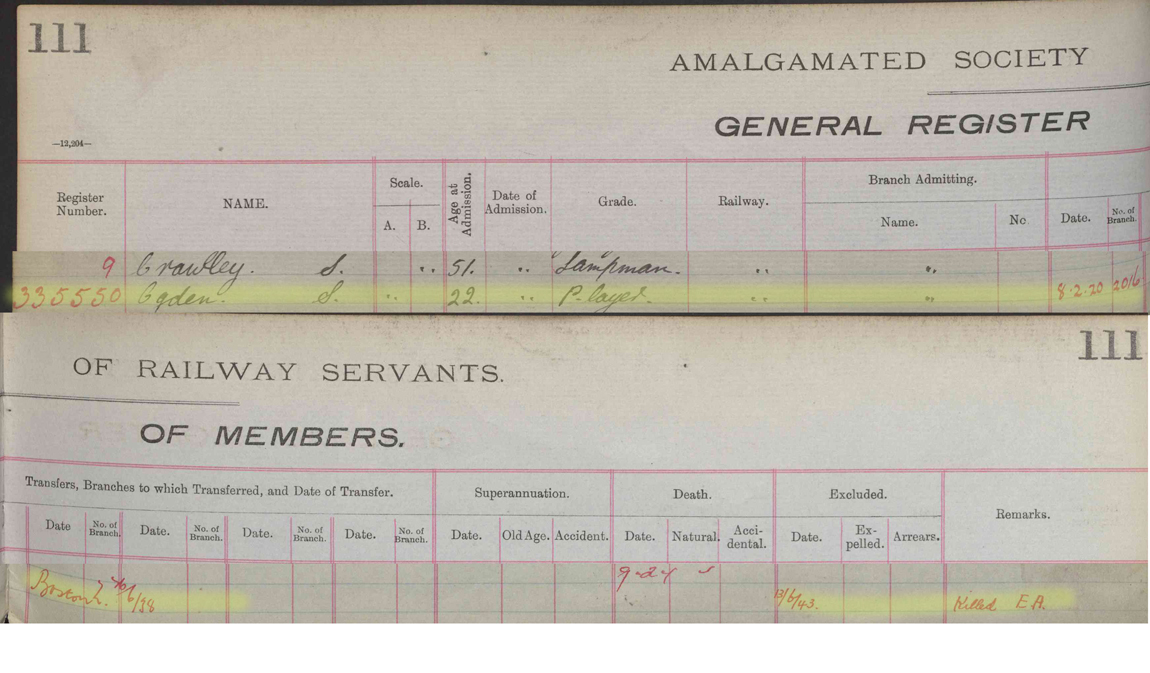 111
AMALGAMATED SOCIETY
GENERAL REGISTER
—12,204—
Register Number.
NAME.
Scale.
A.
B.
Age at Admission.
Date of Admission.
Grade.
Railway.
Branch Admitting.
Name.
No
Date.
No. of Branch.
9 Crawley. S. " 51. " "Lampman. " "
335550 Ogden. S. " 22. " P-layer. " " 8.2.20 2016
111
OF RAILWAY SERVANTS.
OF MEMBERS.
Transfers, Branches to which Transferred, and Date of Transfer.
Superannuation.
Death.
Excluded.
Remarks.
Date
No. of Branch.
Date.
No. of Branch.
Date.
No. of Branch.
Date.
No. of Branch.
Date.
Old Age.
Accident.
Date.
Natural.
Acci-dental.
Date.
Ex-pelled.
Arrears.
9-24 ✓
Boston 2. /6/38 13/6/43. Killed E A.